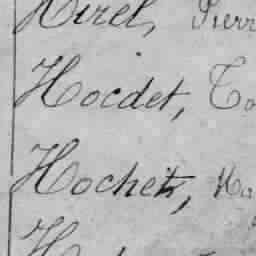 Hirel, Pierr
Hocdet, To
Hochet, Ma